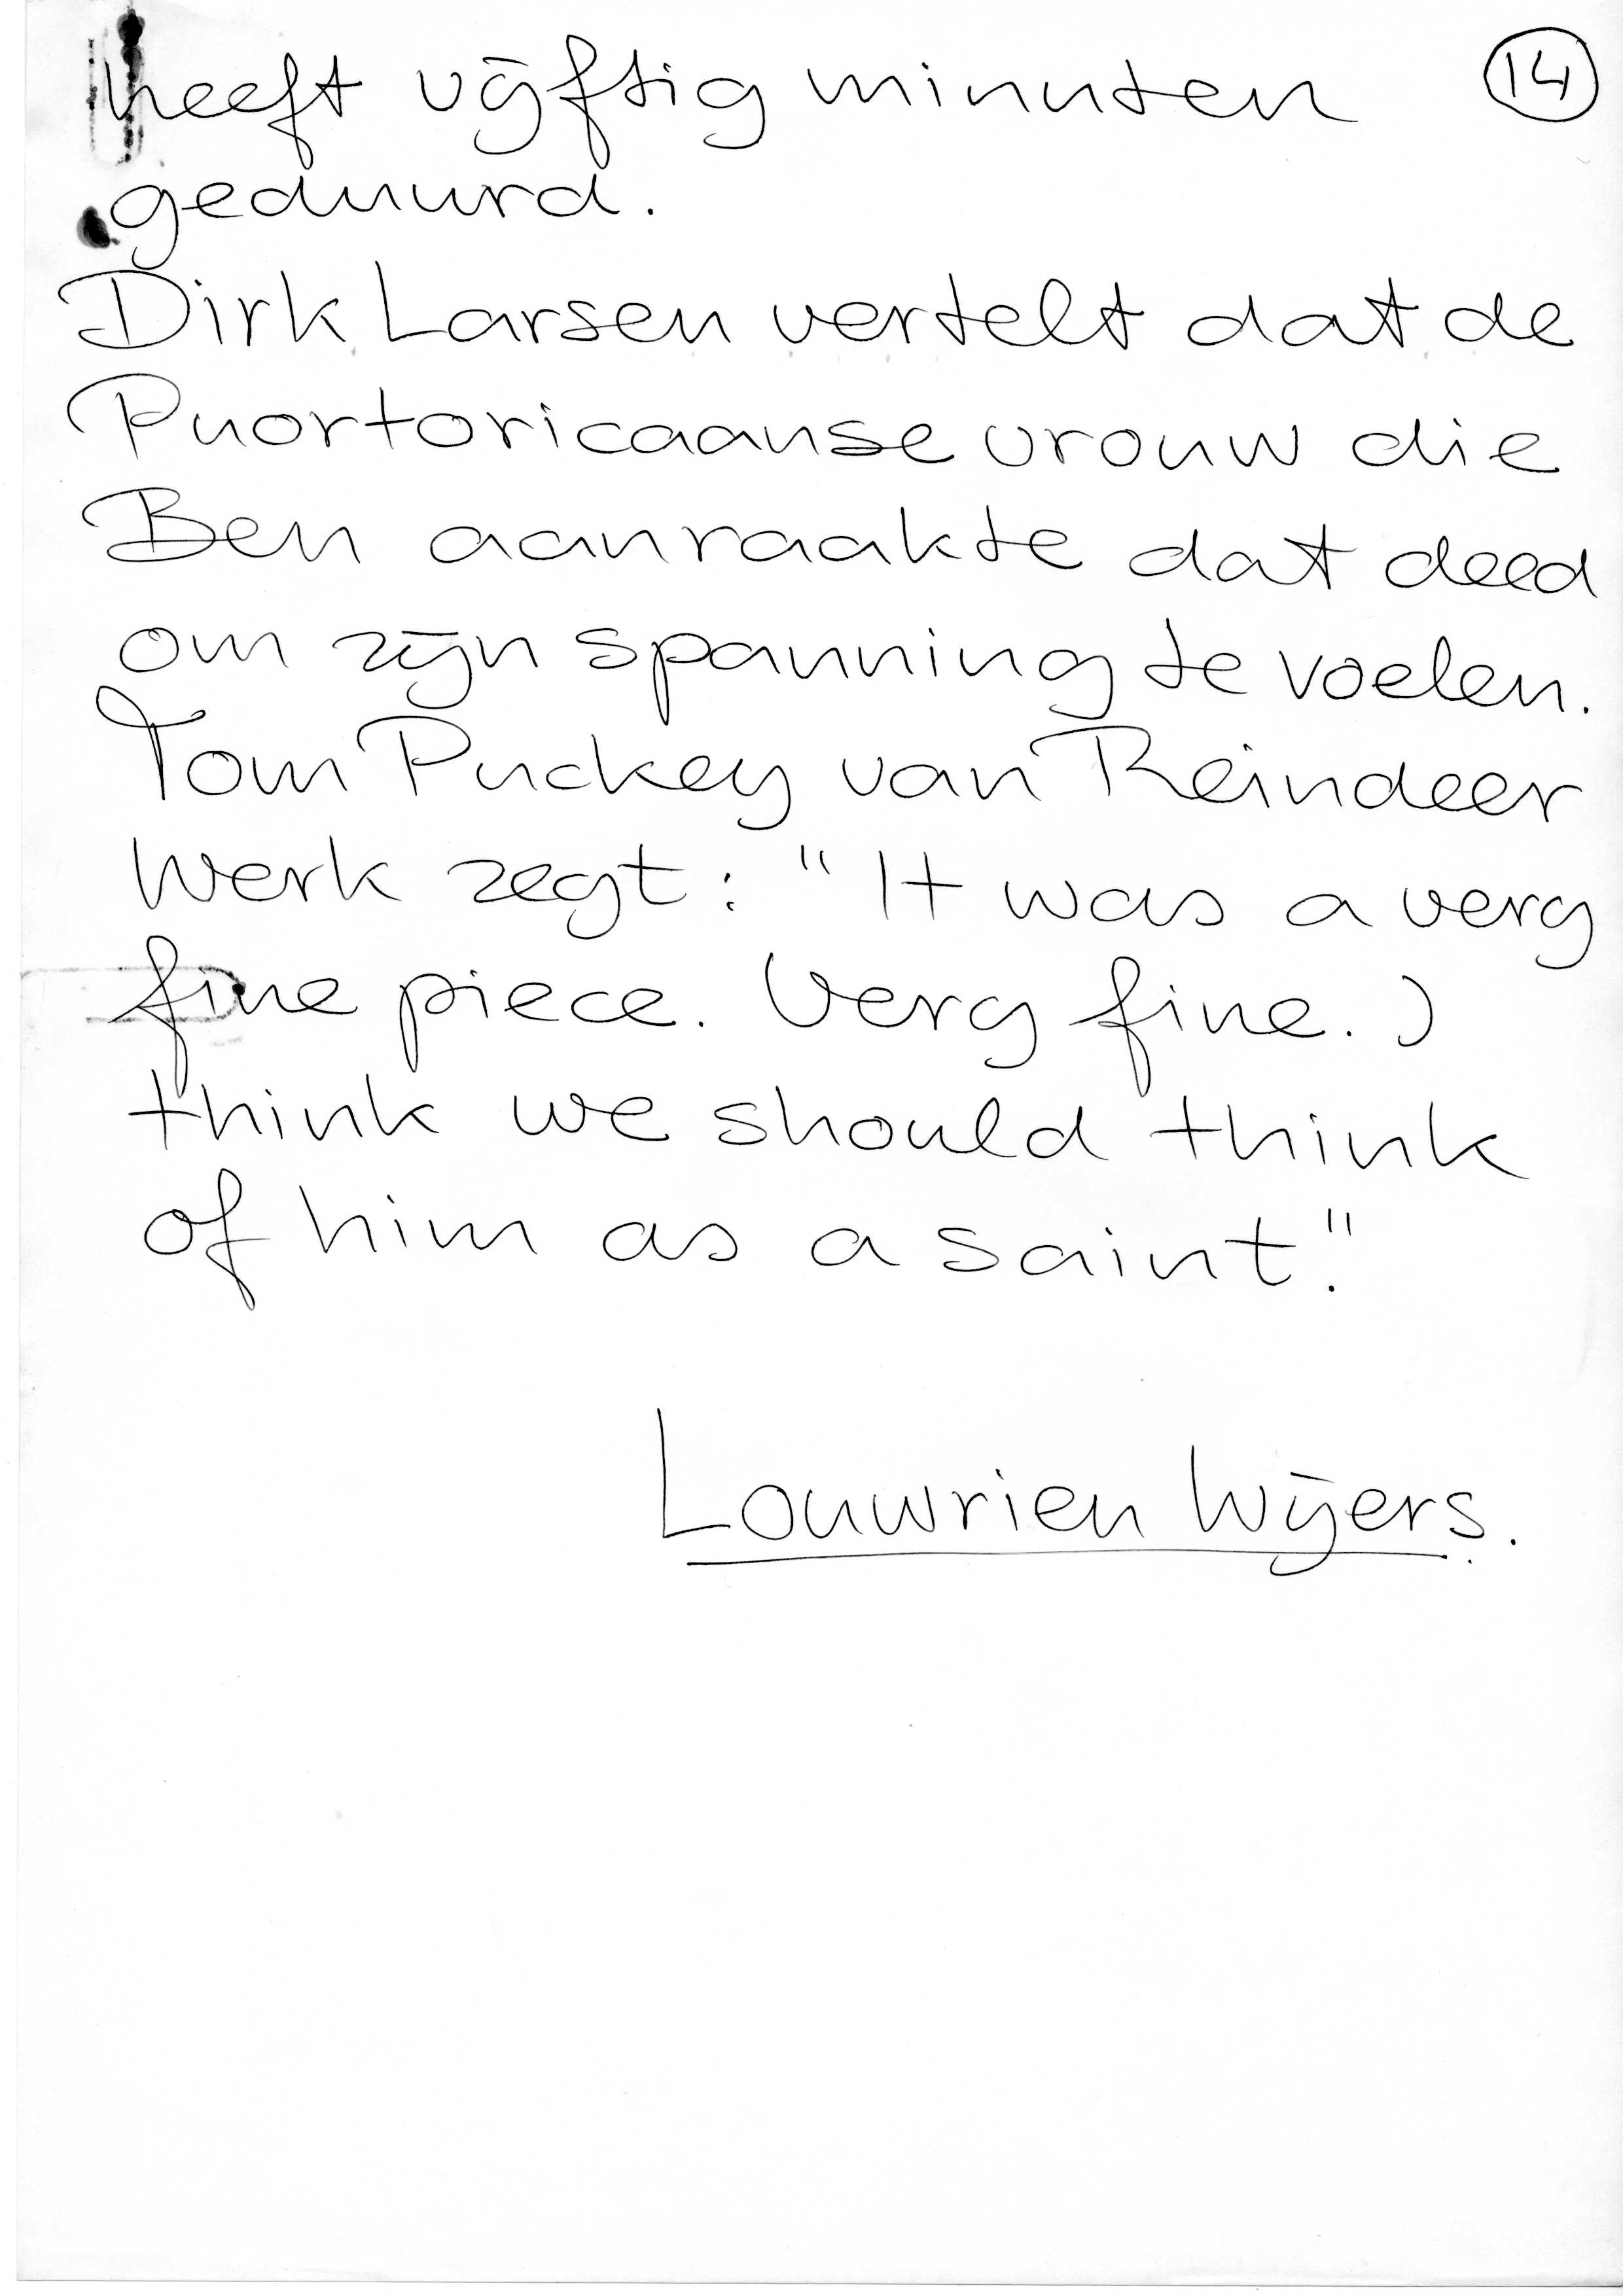 heeft vijftig minuten 14
geduurd.
Dirk Larsen vertelt dat de
Puortoricaanse vrouw die
Ben aanraakte dat deed
om zijn spanning te voelen.
Tom Puckey van Reindeer
Werk zegt: "It was a very
fine piece. Very fine. I
think we should think
of him as a saint."
Louwrien Wijers.